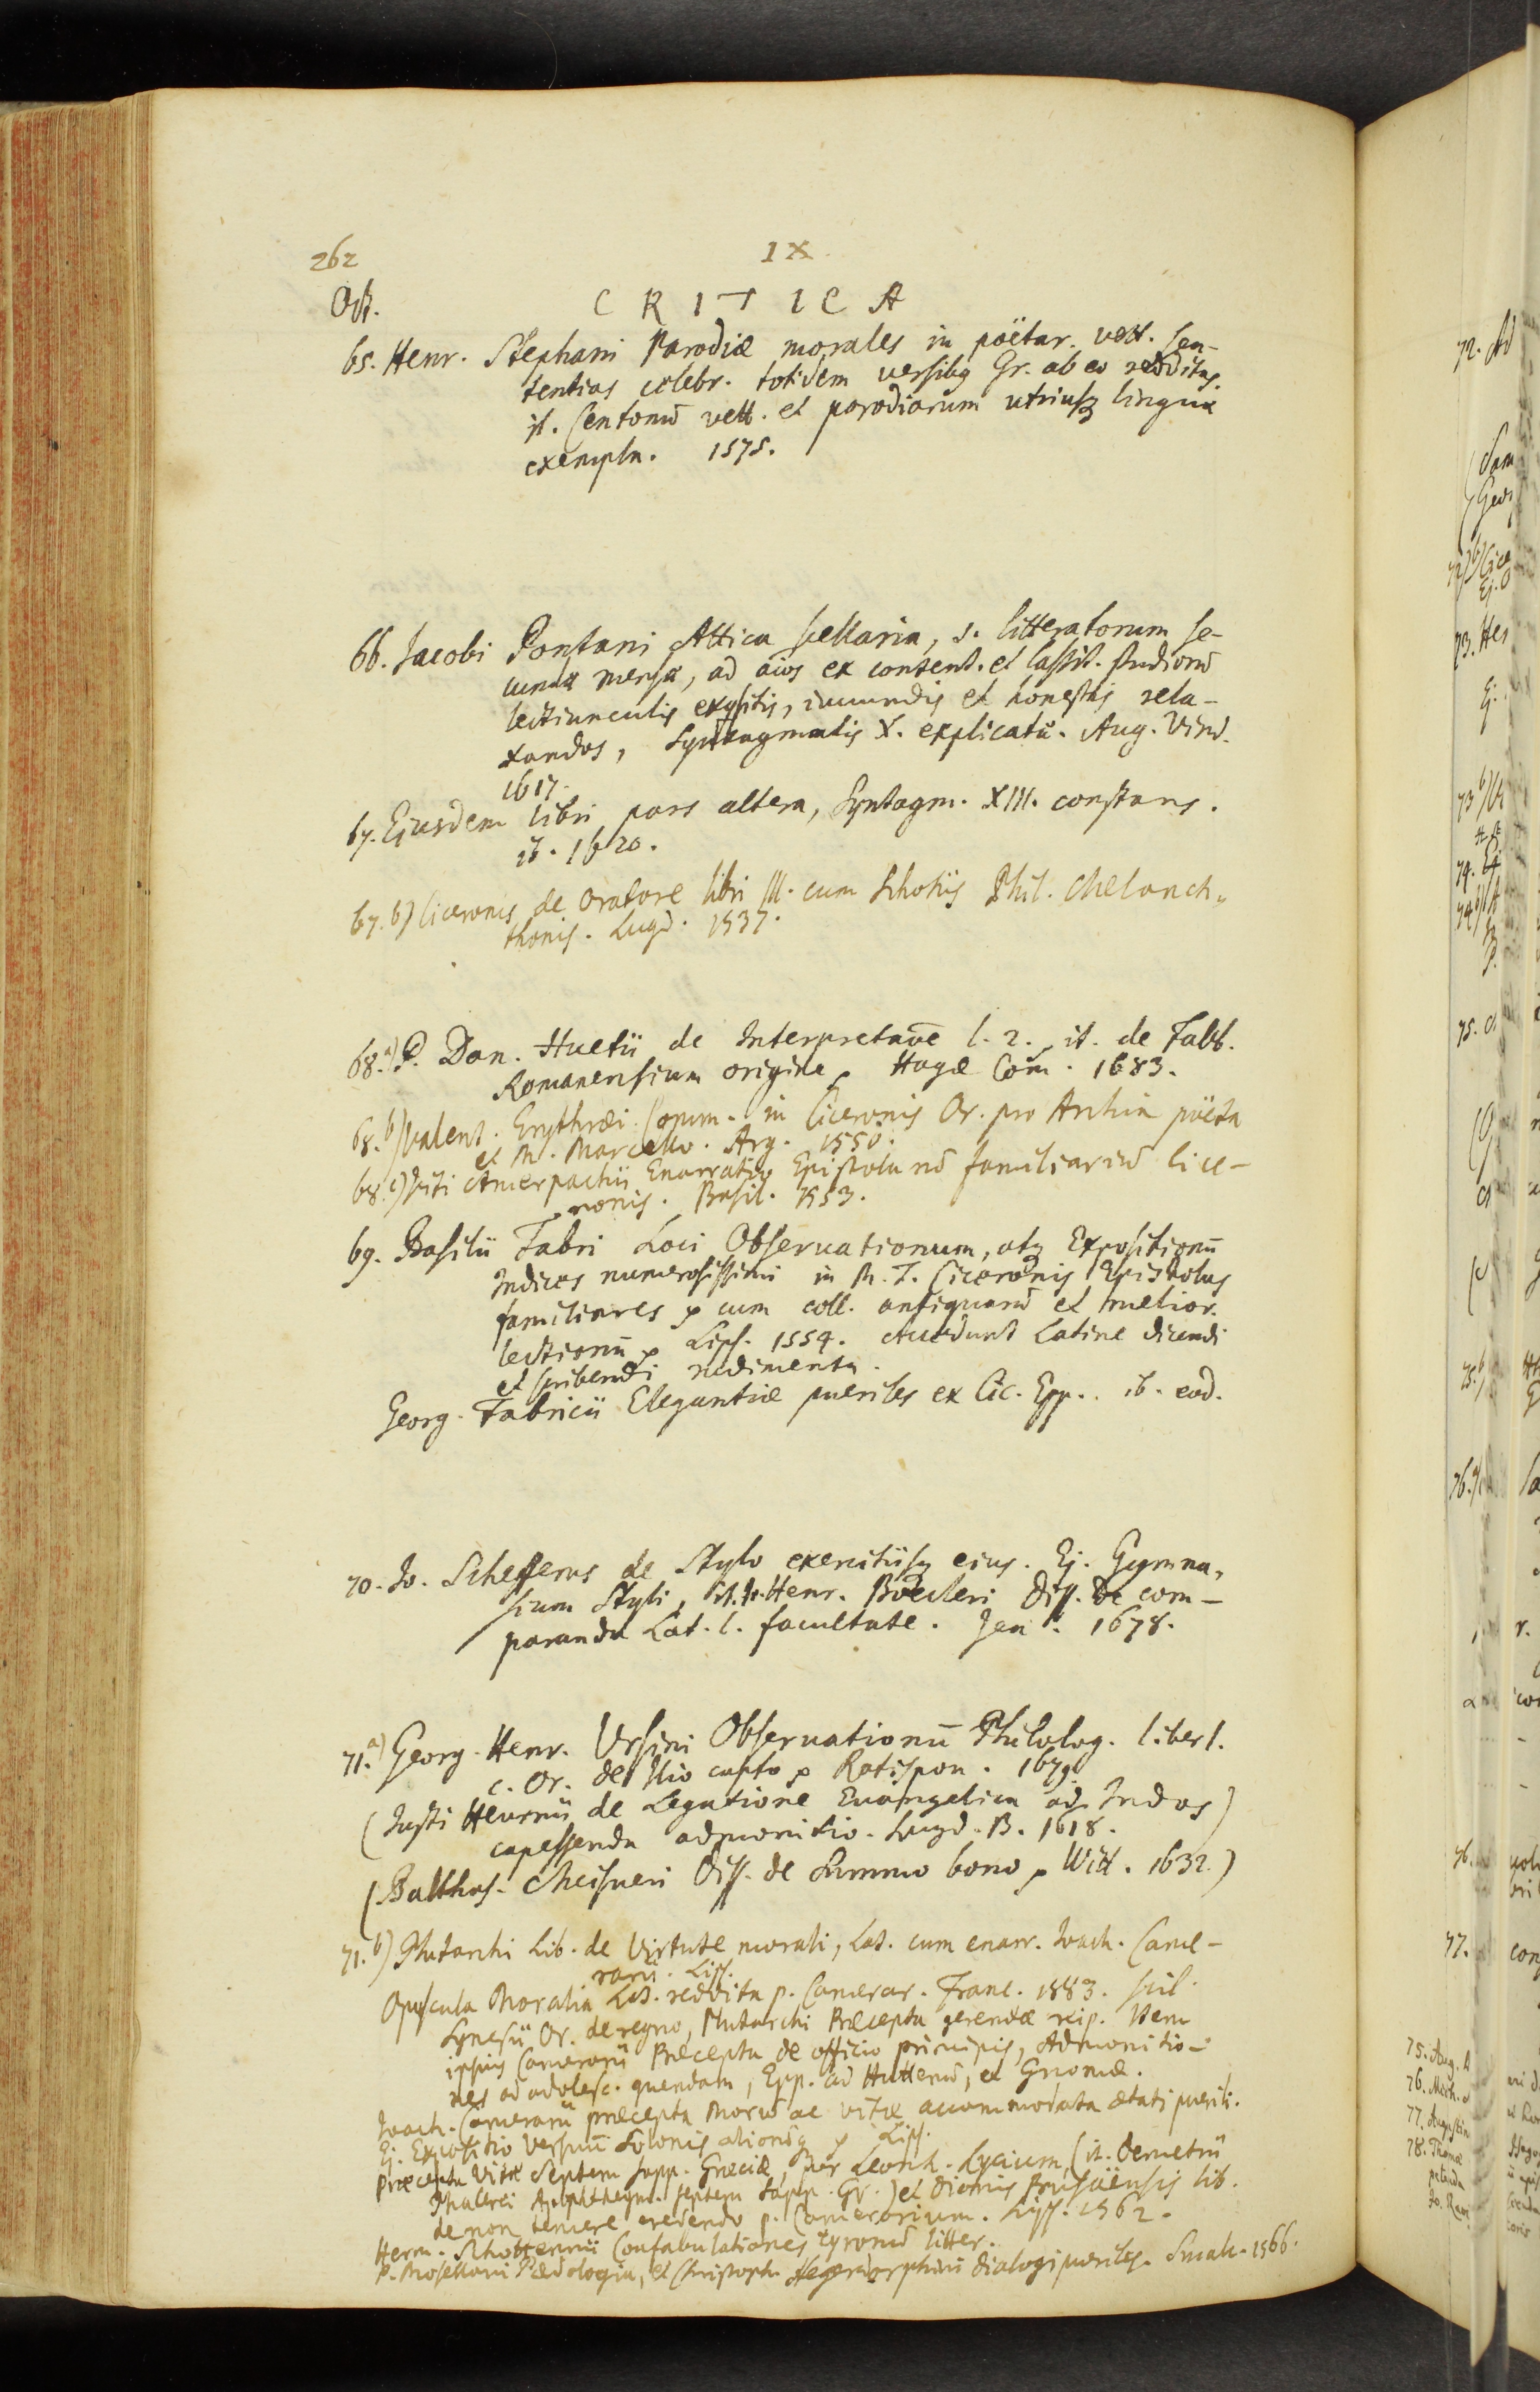 262
IX.
Oct.
CRITICA
65. Henr. Stephani Parodiæ morales in poëtar. vett. sen-
tentias celebr. totidem versibq Gr. ab eo redditas.
it. Centonū vett. et parodiarum utriusqz linguæ
exempla. 1575.
66. Jacobi Pontani Attica bellaria, s. litteratorum se-
cundæ mensæ, ad aīos ex content. et lassit. studiorū
lectiunculis exqsitis, iucundis et honestis rela-
xandos, Syntagmatis X. explicatæ. Aug. Vind.
1617.
67. Ejusdem libri pars altera, Syntagm. XIII. constans.
ib. 1620.
67. b) Ciceronis de Oratore libri III. cum Scholiis Phil. Melanch-
thonis. Lugd. 1537.
68. a) P. Dan. Huetii de Interpretaōe l. 2. it. de Fabb.
Romanensium origine. Hagæ Com. 1683.
68. b) Valent. Erythræi Comm. in Ciceronis Or. pro Archia poëta
et M. Marcello. Arg. 1550.
68. c) Viti Amerpachii Enarratio Epistolarū familiariū Cice-
ronis. Basil. 1553.
69. Basilii Fabri Loci Observationum, atqz Expositionū
Indices numerosissimi in M. T. Ciceronis Epistolas
familiares cum coll. antiquarū et melior.
lectionū Lips. 1554. Accedunt Latine dicendi
et scribendi rudimenta.
Georg. Fabricii Elegantiæ pueriles ex Cic. Epp. ib. eod.
70. Jo. Schefferus de Stylo exercitiisqz eius. Ej. Gymna-
sium Styli, it. Jo. Henr. Boecleri Diss. de com-
paranda Lat. l. facultate. Jenæ. 1678.
71. a) Georg. Henr. Ursini Observationū Philolog. liber 1.
c. Or. de Ilio capto Ratispon. 1679.
(Justi Heurnii de Legatione Evangelica ad Indos)
capessenda admonitio. Lugd. B. 1618.
(Balthas. Meisneri Diss. de Summo bono Witt. 1632.)
71. b) Plutarchi Lib. de Virtute morali, Lat. cum enarr. Joach. Came-
rarii. Lips.
Opuscula Moralia Lat. reddita p. Camerar. Franc. 1583. scil.
Synesii Or. de regno, Plutarchi Præcepta gerendæ reip. Item
ipsius Camerarii Præcepta de officio principis, Admonitio-
nes ad adolesc. quendam, Epp. ad Huttenū, et Gnomæ.
Joach. Camerarii præcepta Morū ac vitæ accommodata ætati puerili.
Ej. Expositio versuū Solonis aliorūqz Lips.
Præcepta Vitæ Septem Sapp. Græciæ, per Leonh. Lycium, (it. Demetrii
Phalerei Apophthegm. septem Sapp. Gr.) et Dionis Prusaënsis lib.
de non temere credendo p. Camerarium. Lips. 1562.
Herm. Schottennii Confabulationes tyronū litter.
P. Mosellani Pædologia, et Christoph. Hegendorphini Dialogi pueriles. Smalc. 1566.
72. Ad
73. Hes
75. Aug.
76.
77. Augustin
78. Thomæ